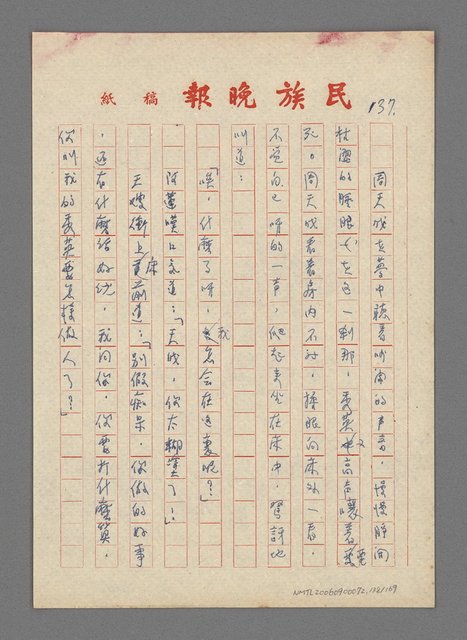 民族晚報 稿紙
137.
周天成在夢中聽著吵鬧的声音，慢慢睜開
枯澀的睡眼，在這一剎那，秀英又高声嚷著要
死。周天成看看房內不対，擡眼向床外一看，
不覺自己呀的一声，爬起來坐在床中，驚訝地
叫道：
「唉，什麼了呀，我怎会在這裏呢？」
阿蓮嘆口氣道：「天成，你太糊塗了！」
王嫂衝上床前道：「別假痴呆，你做的好事
，還有什麼話好説，我問你，你要打什麼算，
你叫我的秀英要怎樣做人了？」
NMTL20060900072, 138/169